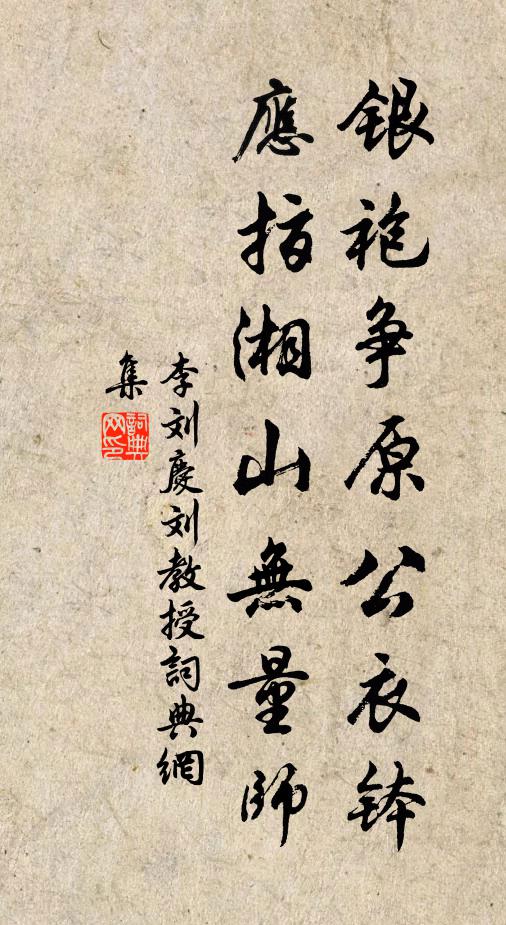 银袍争原公衣钵
應指湘山無量師
李刘慶刘教授詞典網
集
詞典
网印